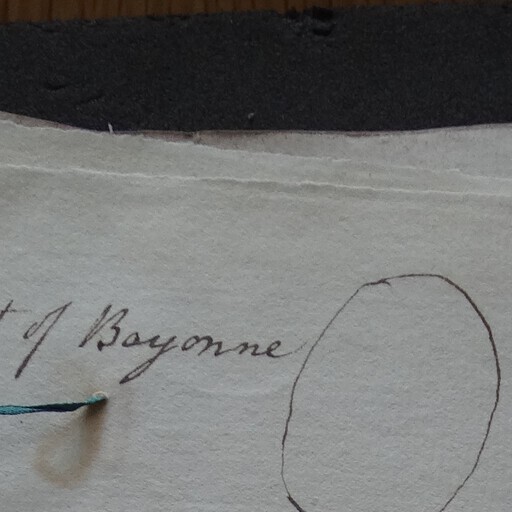 of Bayonne